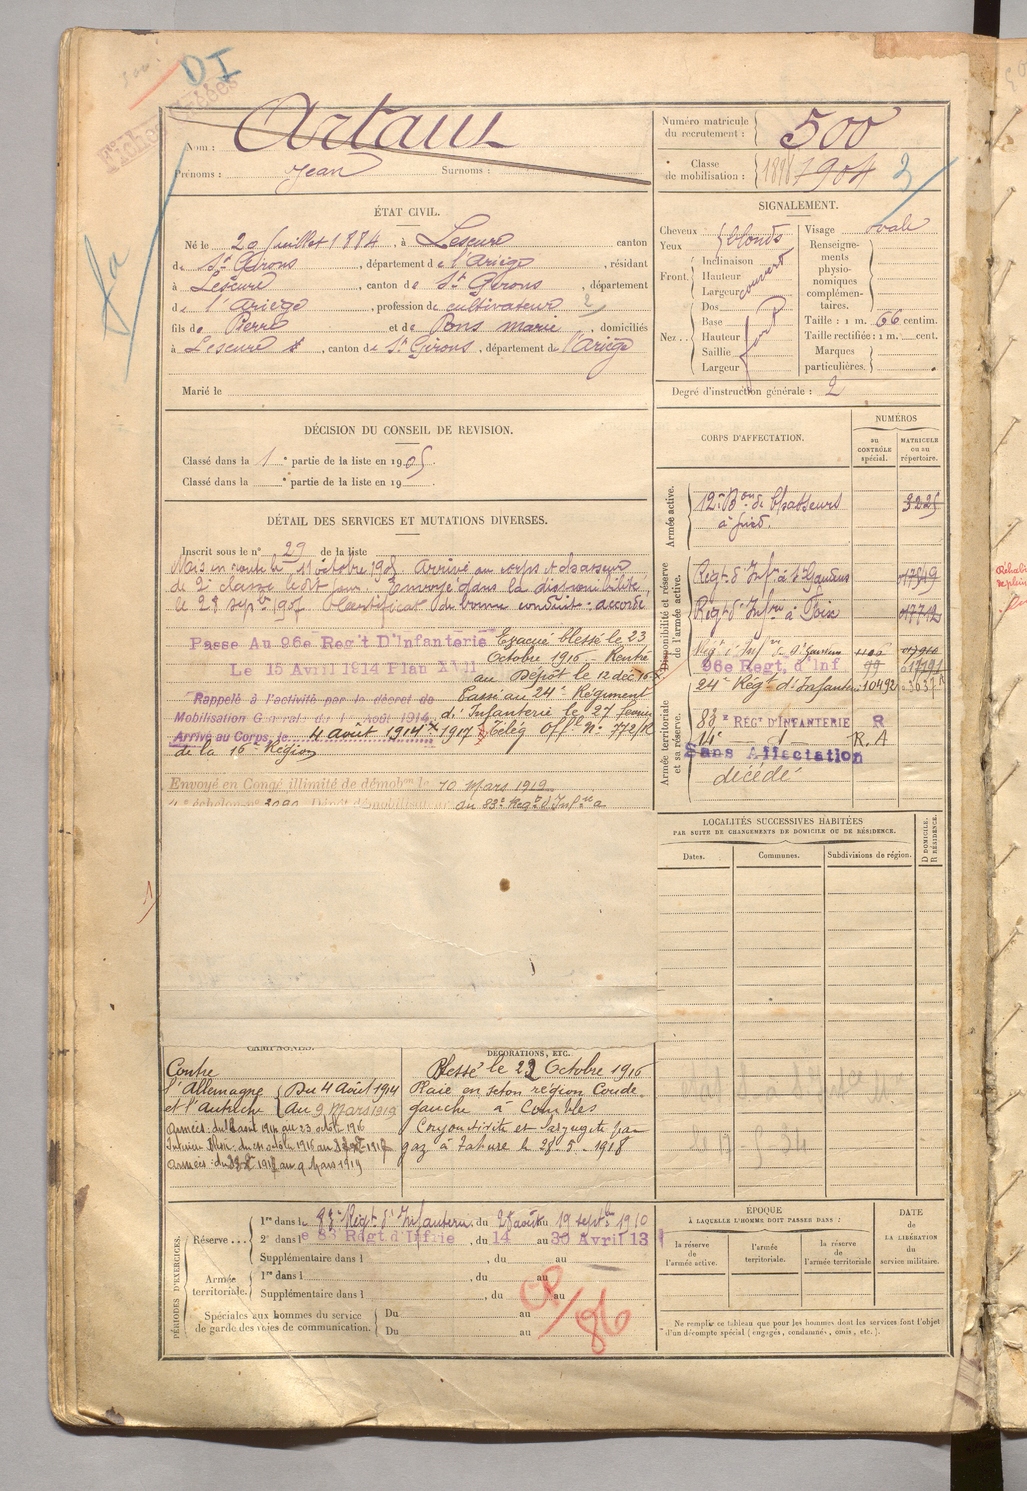 DI
Fiches
Nom : Artaux
Prénoms : Jean Surnoms :
Numéro matricule
du recrutement : 500
Classe
de mobilisation : 1904
ÉTAT CIVIL.
Né le 20 Juillet 1884, à Lescure canton
de St Girons, département de l'Ariège, résidant
à Lescure, canton de St Girons, département
de l'Ariège, profession de cultivateur
fils de Pierre et de Pons Marie, domiciliés
à Lescure, canton de St Girons, département de l'Ariège
Marié le
SIGNALEMENT.
Cheveux blonds
Yeux
Front. Inclinaison couvert
Hauteur
Largeur
Nez. Dos
Base fort
Hauteur
Saillie
Largeur
Visage ovale
Renseigne-
ments
physio-
nomiques
complémen-
taires.
Taille : 1 m. 66 centim.
Taille rectifiée : 1 m. cent.
Marques
particulières.
Degré d'instruction générale : 2
DÉCISION DU CONSEIL DE REVISION.
Classé dans la 1e partie de la liste en 1905.
Classé dans la e partie de la liste en 19
DÉTAIL DES SERVICES ET MUTATIONS DIVERSES.
Inscrit sous le n° 29 de la liste
Mis en route le 11 octobre 1905 Arrivé au corps et chasseur
de 2e classe le dit jour. Envoyé dans la disponibilité,
le 28 septbre 1907 certificat de bonne conduite accordé
Passe Au 96e Reg't D'Infanterie
Le 15 Avril 1914 Plan XVII
Rappelé à l'activité par le décret de
Mobilisation Générale du 1er Août 1914
Arrivé au Corps le 4 août 1914
Evacué blessé le 23
Octobre 1916 Rentré
au Dépôt le 12 déc 16
Passé au 24e Régiment
d'Infanterie le 27 février
1917 Télég Offel n° 772/R
de la 16e Région
Envoyé en Congé illimité de démobon le 10 Mars 1919
au 83e Regt d'Infrie
CORPS D'AFFECTATION.
NUMÉROS
au
CONTRÔLE
spécial.
MATRICULE
ou au
répertoire.
Armée active.
12e Bon de Chasseurs
à pied. 3225
Disponibilité et réserve
de l'armée active.
Régt d'Inf. à St Gaudens
Régt d'Infie à Foix
96e Regt. d'Inf 99
24e Régt d'Infanterie 10492
Armée territoriale
et sa réserve.
83e RÉGt D'INFANTERIE R
14e R.A
Sans Affectation
décédé
LOCALITÉS SUCCESSIVES HABITÉES
PAR SUITE DE CHANGEMENTS DE DOMICILE OU DE RÉSIDENCE.
Dates. Communes. Subdivisions de région.
D DOMICILE.
R RÉSIDENCE.
CAMPAGNES.
Contre
l'Allemagne Du 4 Août 1914
et l'Autriche Au 9 Mars 1919
DÉCORATIONS, ETC.
Blessé le 22 Octobre 1916
Plaie en seton région Coude
gauche à Combles
Conjonctivite et laryngite par
gaz à Tahure le 28-5-1918
PÉRIODES D'EXERCICES.
Réserve ... 1re dans le 83e Régt d'Infanterie du 28 août au 19 septbre 1910
2e dans le 83 Regt d'Inf'rie, du 14 au 30 Avril 13
Supplémentaire dans l , du au
Armée
territoriale.
1re dans l , du au
Supplémentaire dans l , du au
Spéciales aux hommes du service
de garde des voies de communication.
Du au
Du au
CP/86
ÉPOQUE
À LAQUELLE L'HOMME DOIT PASSER DANS :
la réserve
de
l'armée active.
l'armée
territoriale.
la réserve
de
l'armée territoriale
DATE
de
LA LIBÉRATION
du
service militaire.
Ne remplir ce tableau que pour les hommes dont les services font l'objet
d'un décompte spécial (engagés, condamnés, omis, etc.).